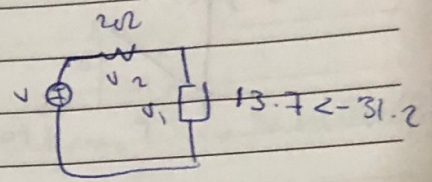 2Ω
V V2
V1 13.7<-31.2